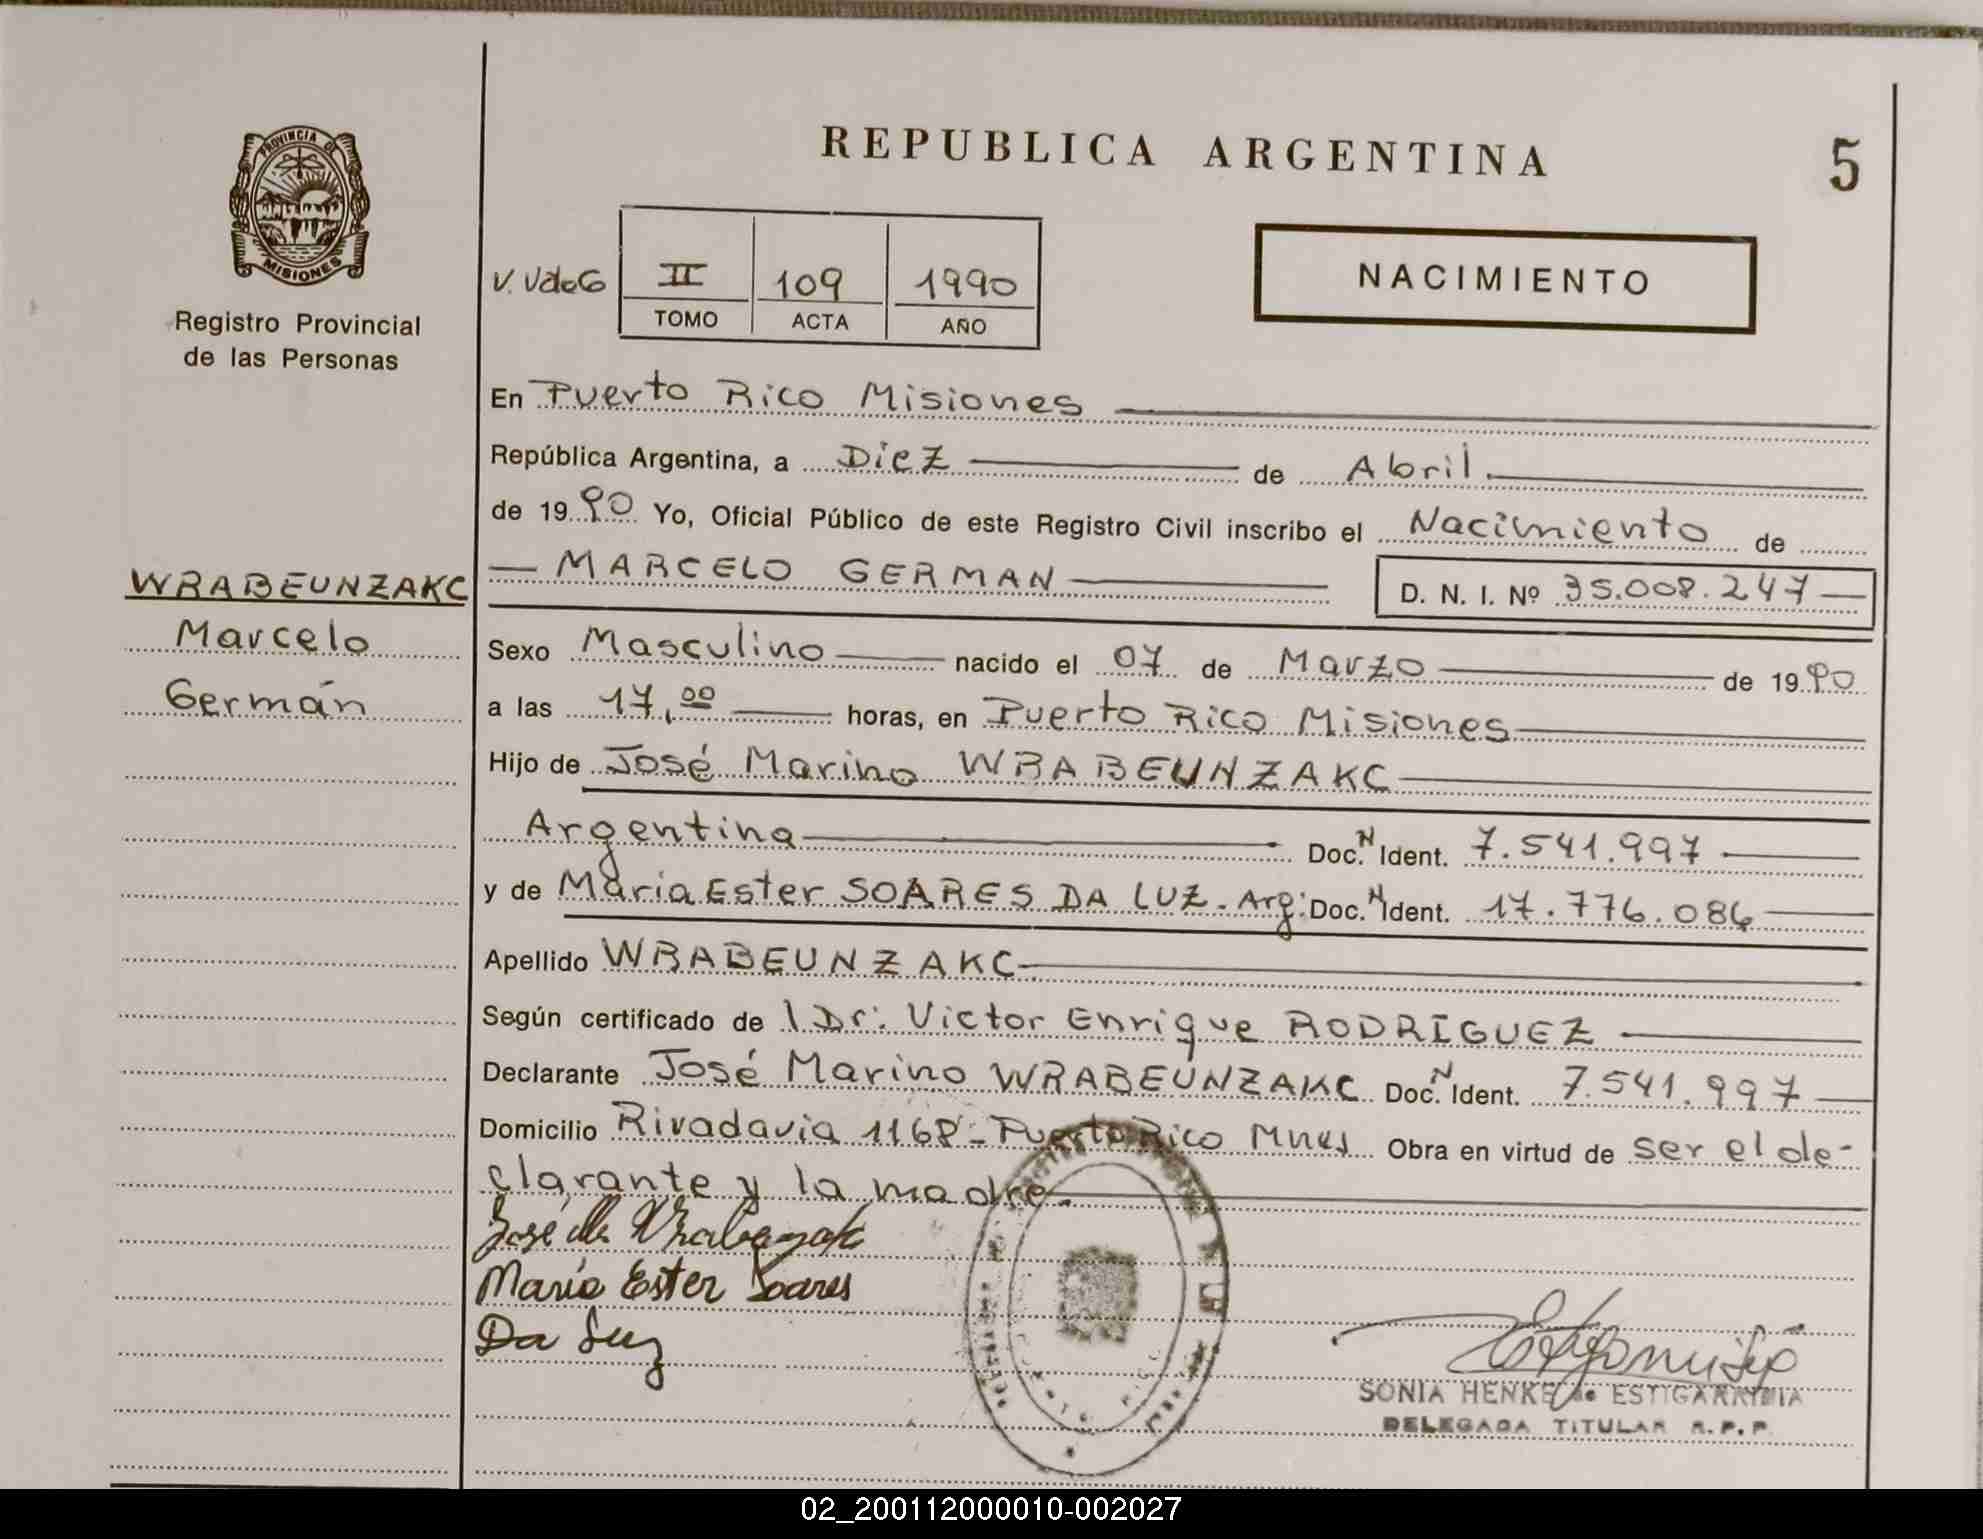 PROVINCIA DE
MISIONES
Registro Provincial
de las Personas
WRABEUNZAKC
Marcelo
Germán
REPUBLICA ARGENTINA
5
V. Vdeo
II 109 1990
TOMO ACTA AÑO
NACIMIENTO
En Puerto Rico Misiones
República Argentina, a Diez de Abril.
de 1990 Yo, Oficial Público de este Registro Civil inscribo el Nacimiento de
MARCELO GERMAN D. N. I. Nº 35.008.247
Sexo Masculino nacido el 07 de Marzo de 1990
a las 17,00 horas, en Puerto Rico Misiones
Hijo de José Marino WRABEUNZAKC
Argentina Doc. N Ident. 7.541.997
y de María Ester SOARES DA LUZ. Arg: Doc. N Ident. 17.776.086
Apellido WRABEUNZAKC
Según certificado de l Dr: Victor Enrique RODRÍGUEZ
Declarante José Marino WRABEUNZAKC Doc. N Ident. 7.541.997
Domicilio Rivadavia 1168 - Puerto Rico Mnes Obra en virtud de ser el de-
clarante y la madre.
José M.
María Ester Soares
Da Luz
SONIA HENKE de ESTIGARRIBIA
DELEGADA TITULAR R.P.P.
02_200112000010-002027